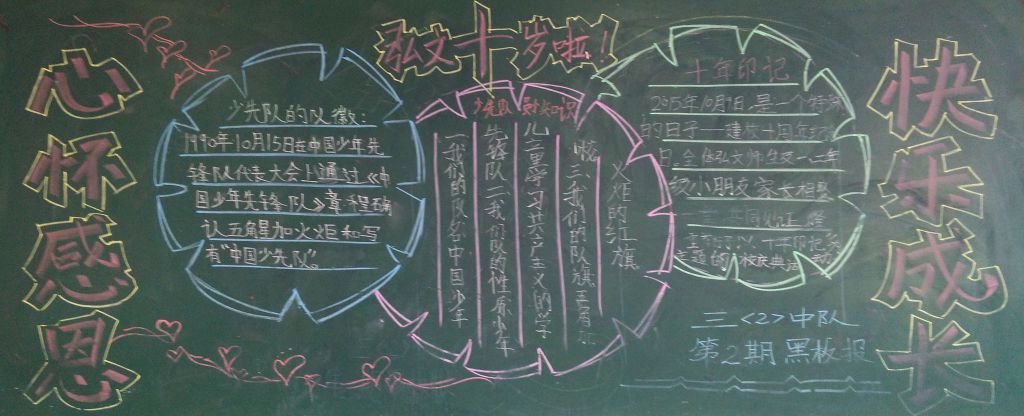 弘文十岁啦！
心怀感恩
少先队的队徽：
1990年10月15日在中国少年先
锋队代表大会上通过《中
国少年先锋队》章程确
认五角星加火炬和写
有“中国少先队”。
少先队 知识
一我们的队名中国少年
先锋队二我们队的性质少年
儿童学习共产主义的学
三我们的队旗五角星
火炬的红旗
十年印记
2015年10月9日是一个特殊
的日子——建校十周年
日。全体弘文师生及一二年
级小朋友家长相聚
一共同见证
十年印记
主题的校庆典活动
快乐成长
三<2>中队
第2期黑板报